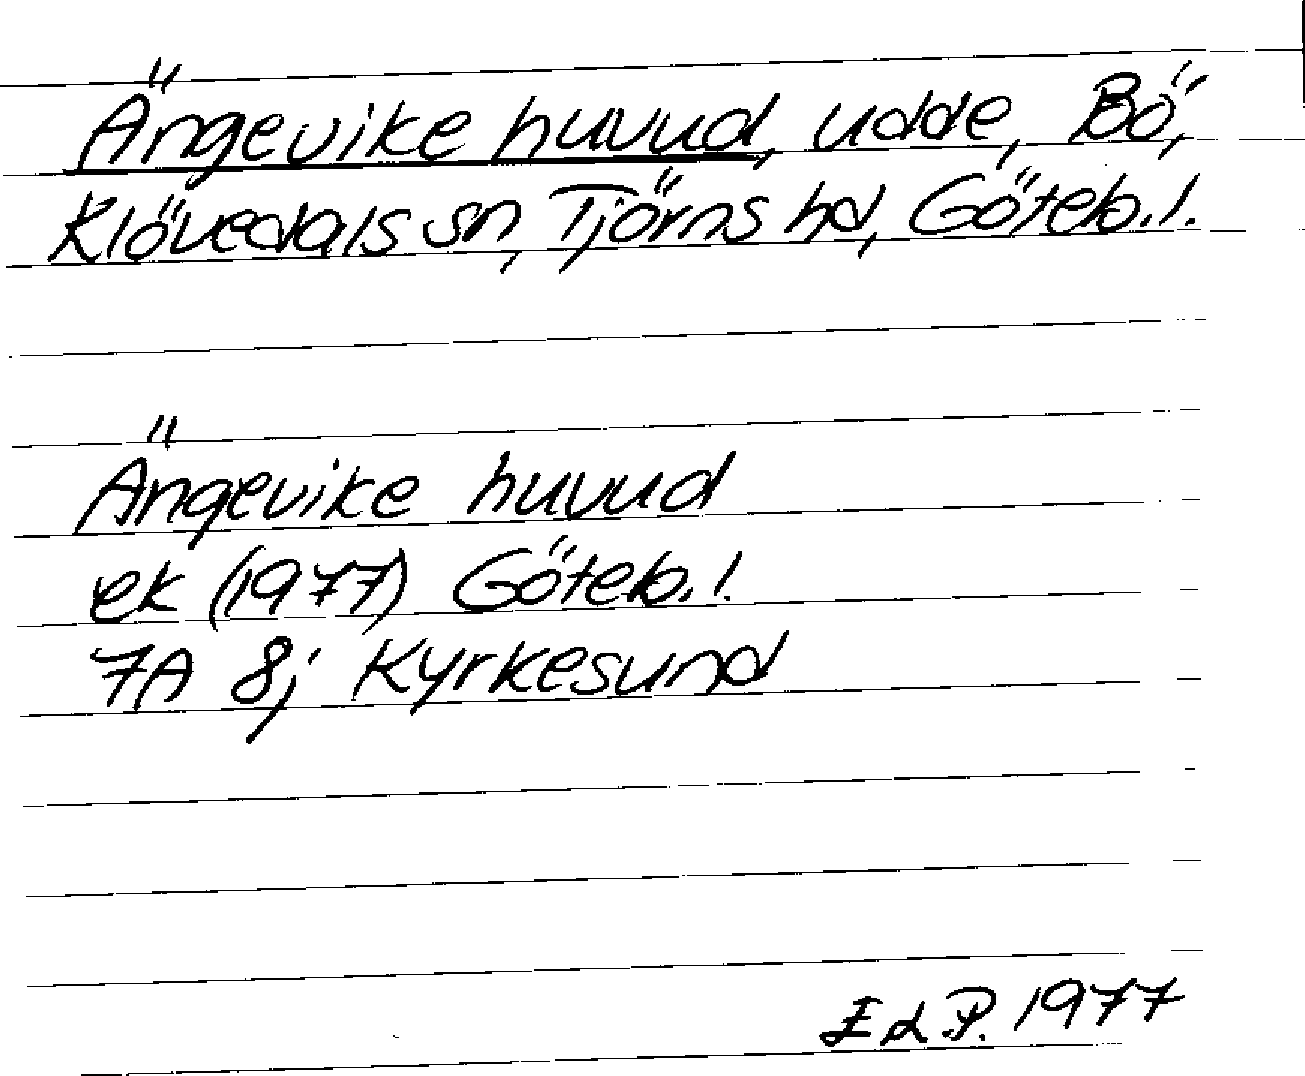 Ängevike huvud, udde, Bö,
Klövedals sn, Tjörns hd, Göteb. l.
Ängevike huvud
ek (1977) Göteb. l.
7A 8j Kyrkesund
E d P. 1977